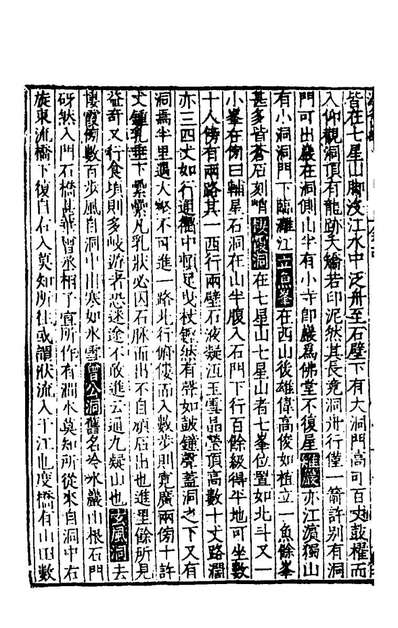 皆在七星山脚没江水中泛舟至石壁下有大洞門高可百丈鼓櫂而
入仰觀洞頂有龍跡夭矯若印泥然其長竟洞舟行僅一箭許别有洞
門可出巖在洞側山半有小寺卽巖爲佛堂不復屋雉巖亦江濱獨山
有小洞洞門下臨灕江立魚峯在西山後雄偉高峻如植立一魚餘峯
甚多皆蒼石刻峭棲霞洞在七星山七星山者七峯位置如北斗又一
小峯在傍曰輔星石洞在山半腹入石門下行百餘級得平地可坐數
十人傍有兩路其一西行兩壁石液凝沍玉雪晶瑩頂高數十丈路濶
亦三四丈如行通衢中頓足曳杖鏗然有聲如鼓鐘聲蓋洞之下又有
洞焉半里遇大壑不可進一路北行俯僂而入數步則寛廣兩傍十許
丈鍾乳垂下纍纍凡乳狀必因石脉而出不自頑石出也進里餘所見
益奇又行食頃則多岐遊者恐迷途不敢進云通九疑山也玄風洞去
棲霞傍數百步風自洞中出寒如氷雪曾公洞舊名冷水巖山根石門
砑然入門石橋甚華曾丞相子宣所作有澗水莫知所從來自洞中右
旋東流橋下復自右入莫知所往或謂狀流入于江也度橋有山田數